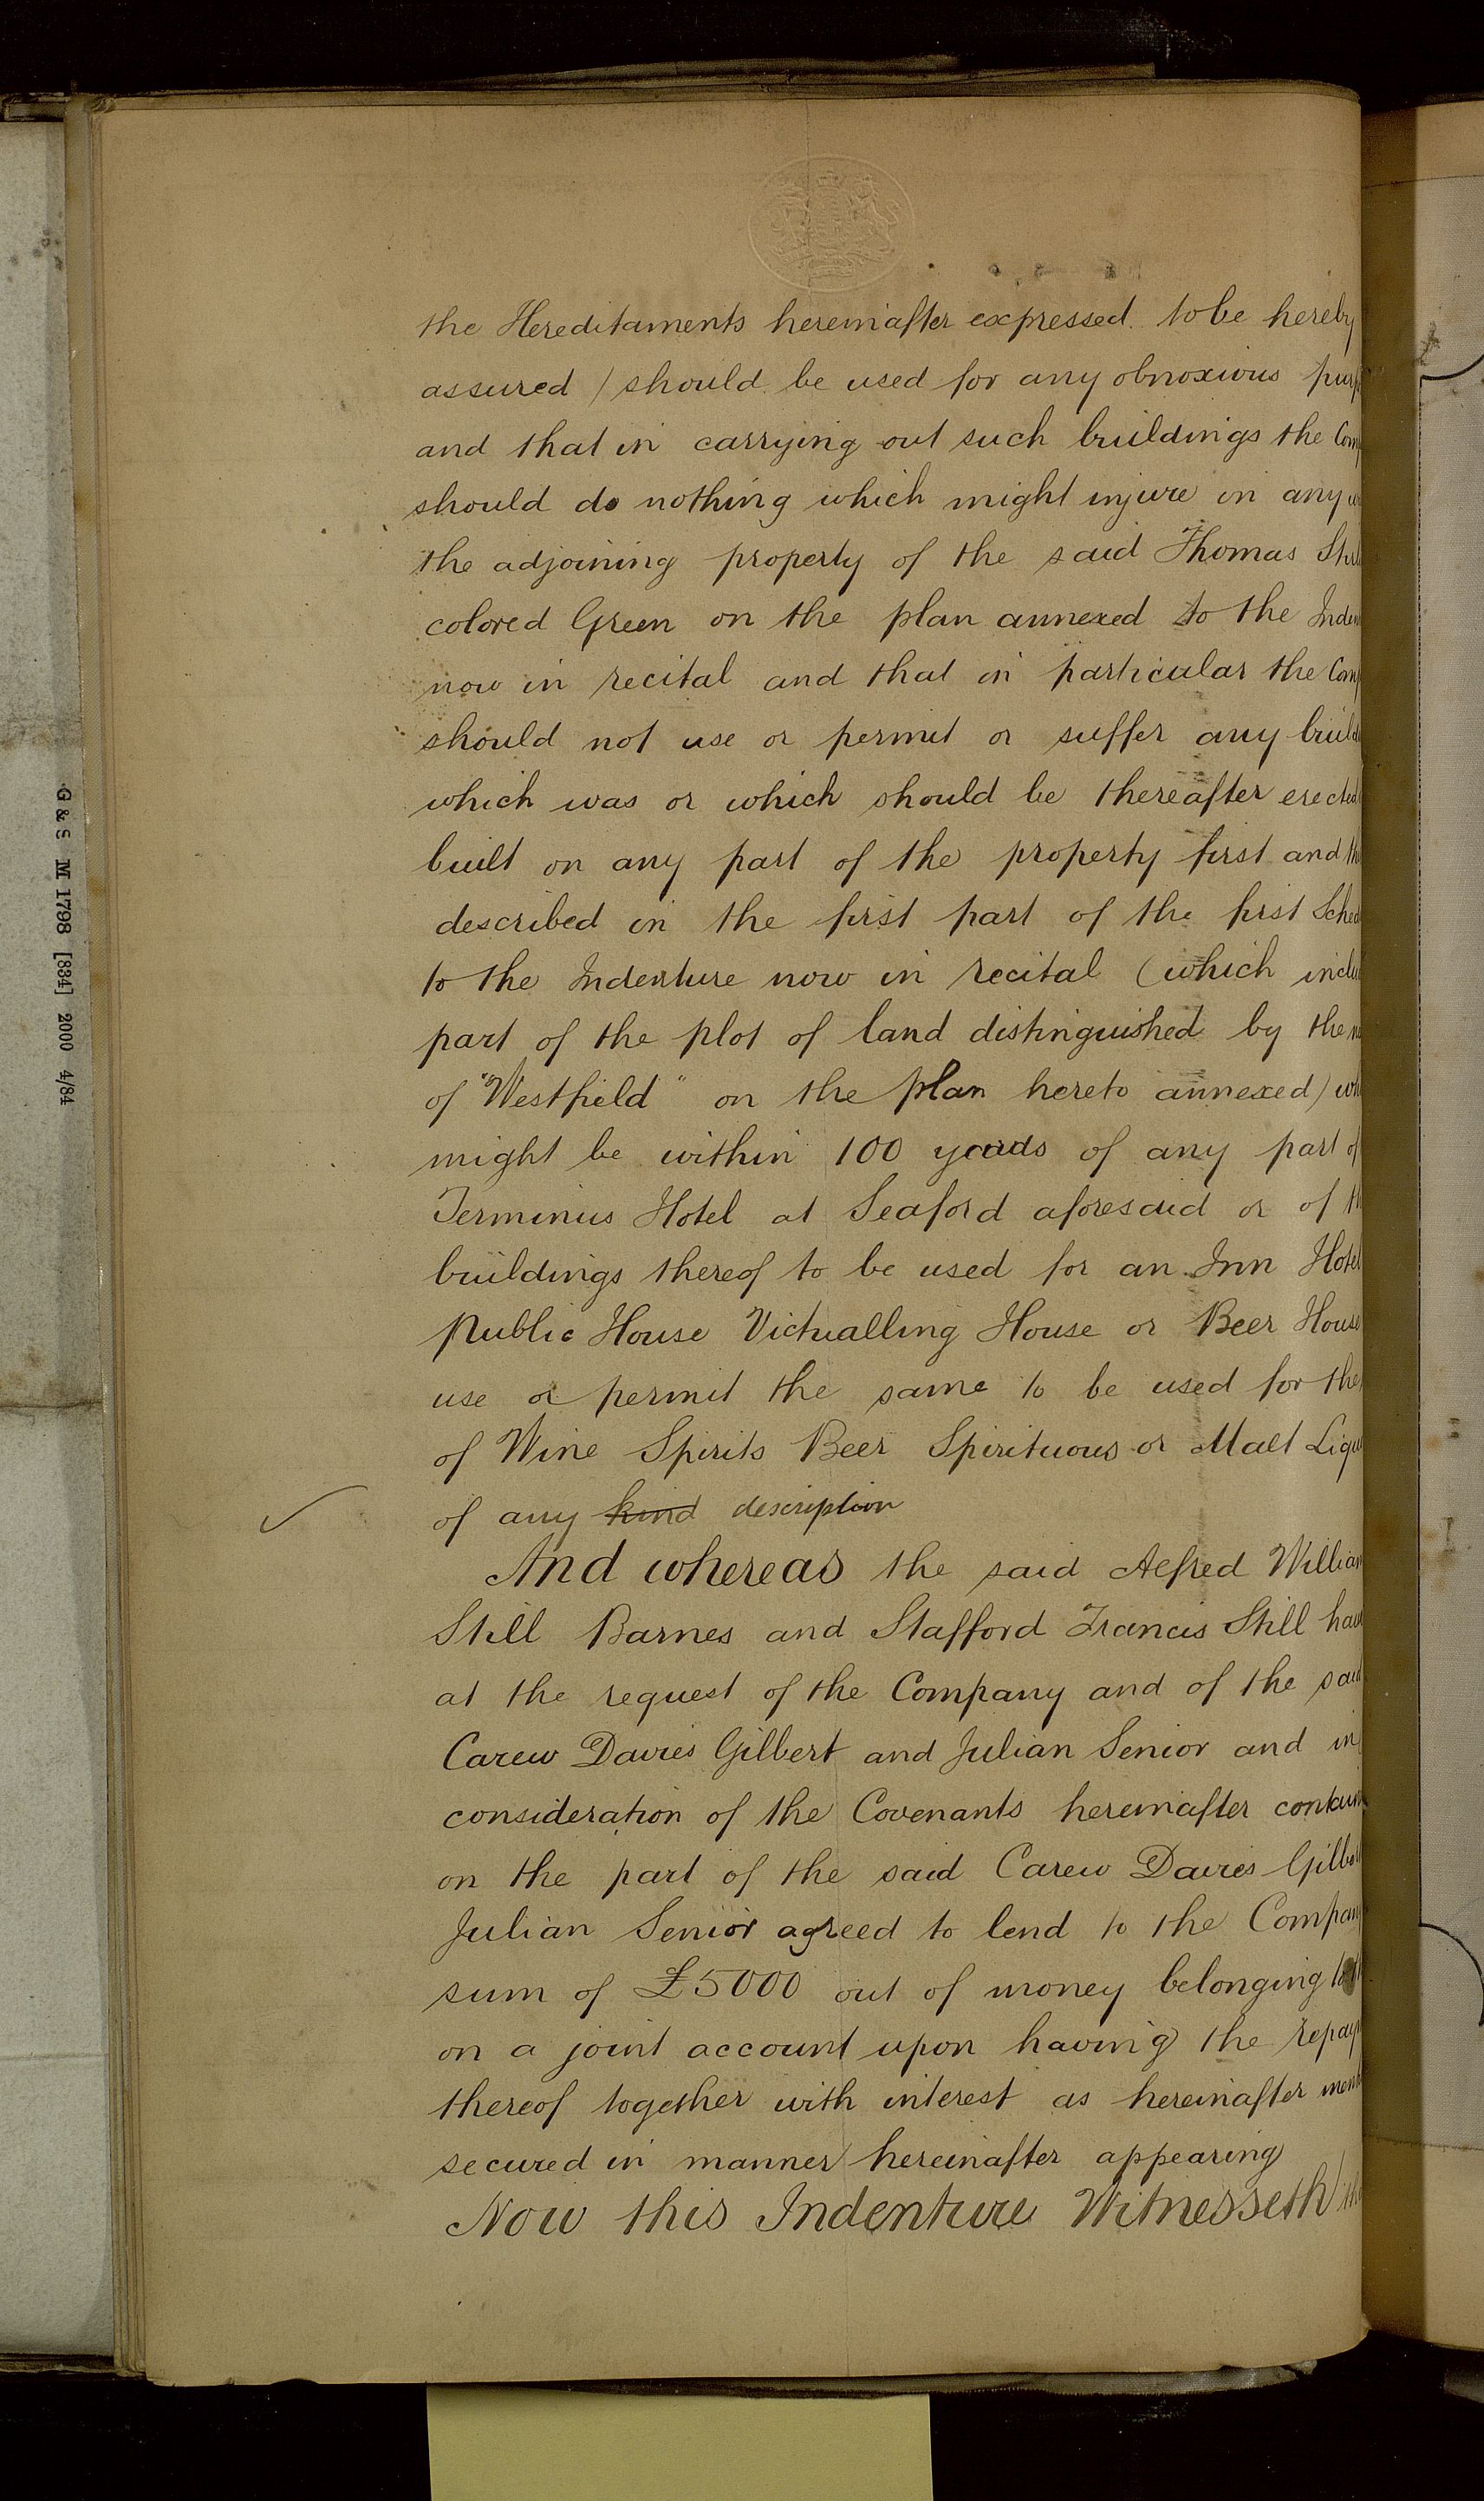 the Hereditaments hereinafter expressed to be hereby
assured / should be used for any obnoxious purp
and that in carrying out such buildings the Com
should do nothing which might injure in any w
the adjoining property of the said Thomas Stil
colored Green on the plan annexed to the Inden
now in recital and that in particular the Comp
should not use or permit or suffer any build
which was or which should be thereafter erected
built on any part of the property first and th
described in the first part of the first Sched
to the Indenture now in recital (which inclu
part of the plot of land distinguished by the n
of "Westfield" on the plan hereto annexed) wh
might be within 100 yards of any part of
Terminus Hotel at Seaford aforesaid or of th
buildings thereof to be used for an Inn Hotel
Public House Victualling House or Beer House
use or permit the same to be used for the
of Wine Spirits Beer Spirituous or Malt Liqu
of any kind description
And whereas the said Alfred William
Still Barnes and Stafford Francis Still have
at the request of the Company and of the said
Carew Davies Gilbert and Julian Senior and in
consideration of the Covenants hereinafter contain
on the part of the said Carew Davies Gilbe
Julian Senior agreed to lend to the Company
sum of £5000 out of money belonging to th
on a joint account upon having the repay
thereof together with interest as hereinafter ment
secured in manner hereinafter appearing
Now this Indenture Witnesseth tha
G & S M 1798 [834] 2000 4/84